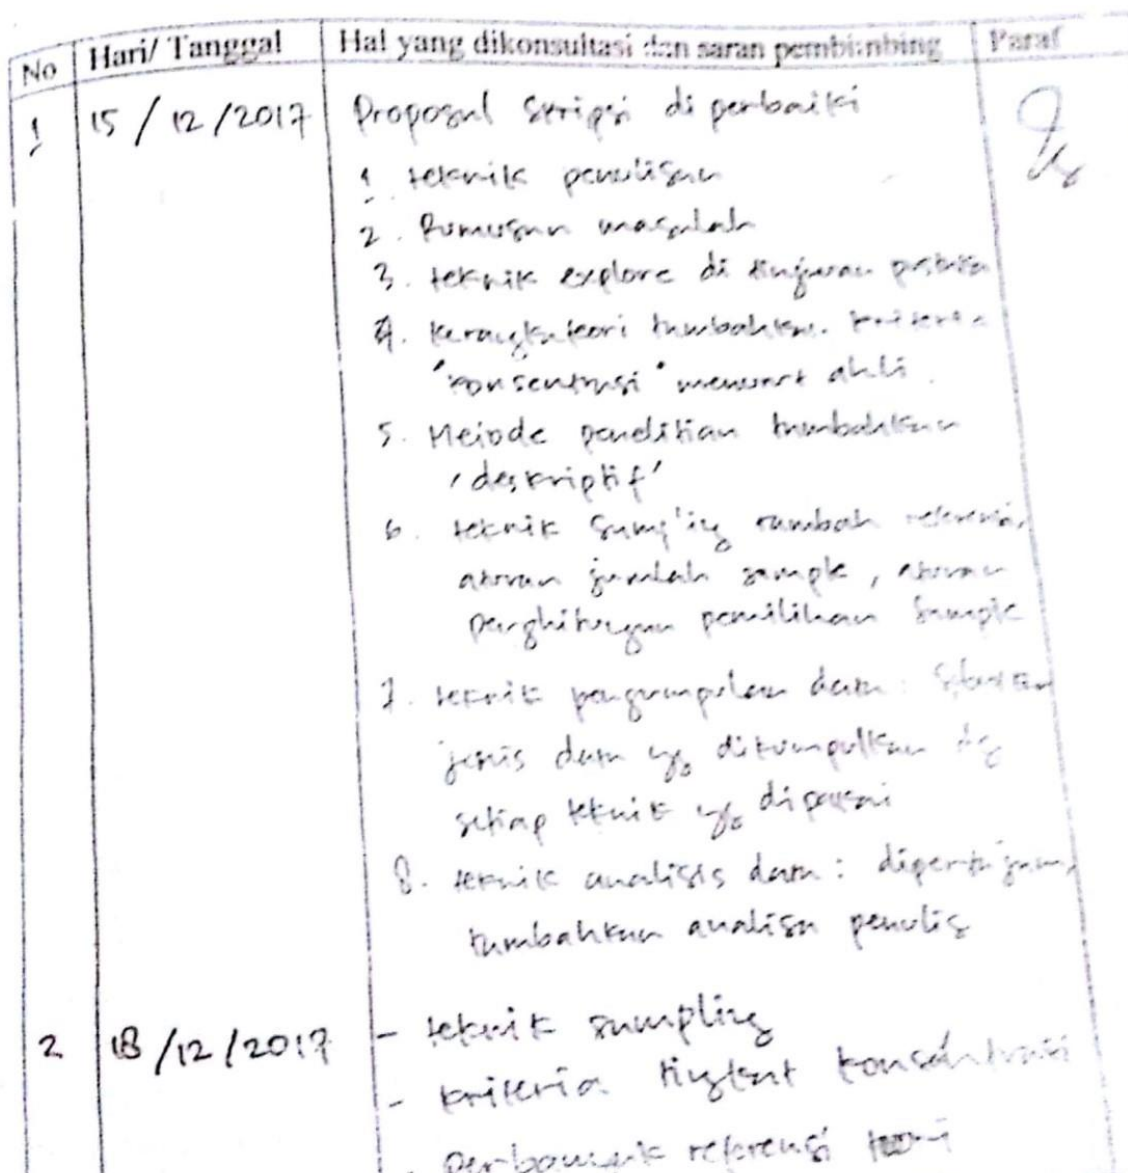 No
Hari/ Tanggal
Hal yang dikonsultasi dan saran pembimbing
Paraf
1
15/12/2017
Proposal skripsi diperbaiki
1. teknik penulisan
2. Rumusan masalah
3. teknik explore di tinjauan pustaka
4. Kerangka teori tambahkan kriteria
"konsentrasi" menurut ahli.
5. Metode penelitian tambahkan
'deskriptif'
6. teknik sampling tambah referensi,
aturan jumlah sample, aturan
penghitungan pemilihan sample
7. teknik pengumpulan data : sebutkan
jenis data yg dikumpulkan dg
setiap teknik yg dipakai
8. teknik analisis data : dipertajam,
tambahkan analisa penulis
2
18/12/2017
- teknik sampling
- kriteria tingkat konsentrasi
- perbanyak referensi teori